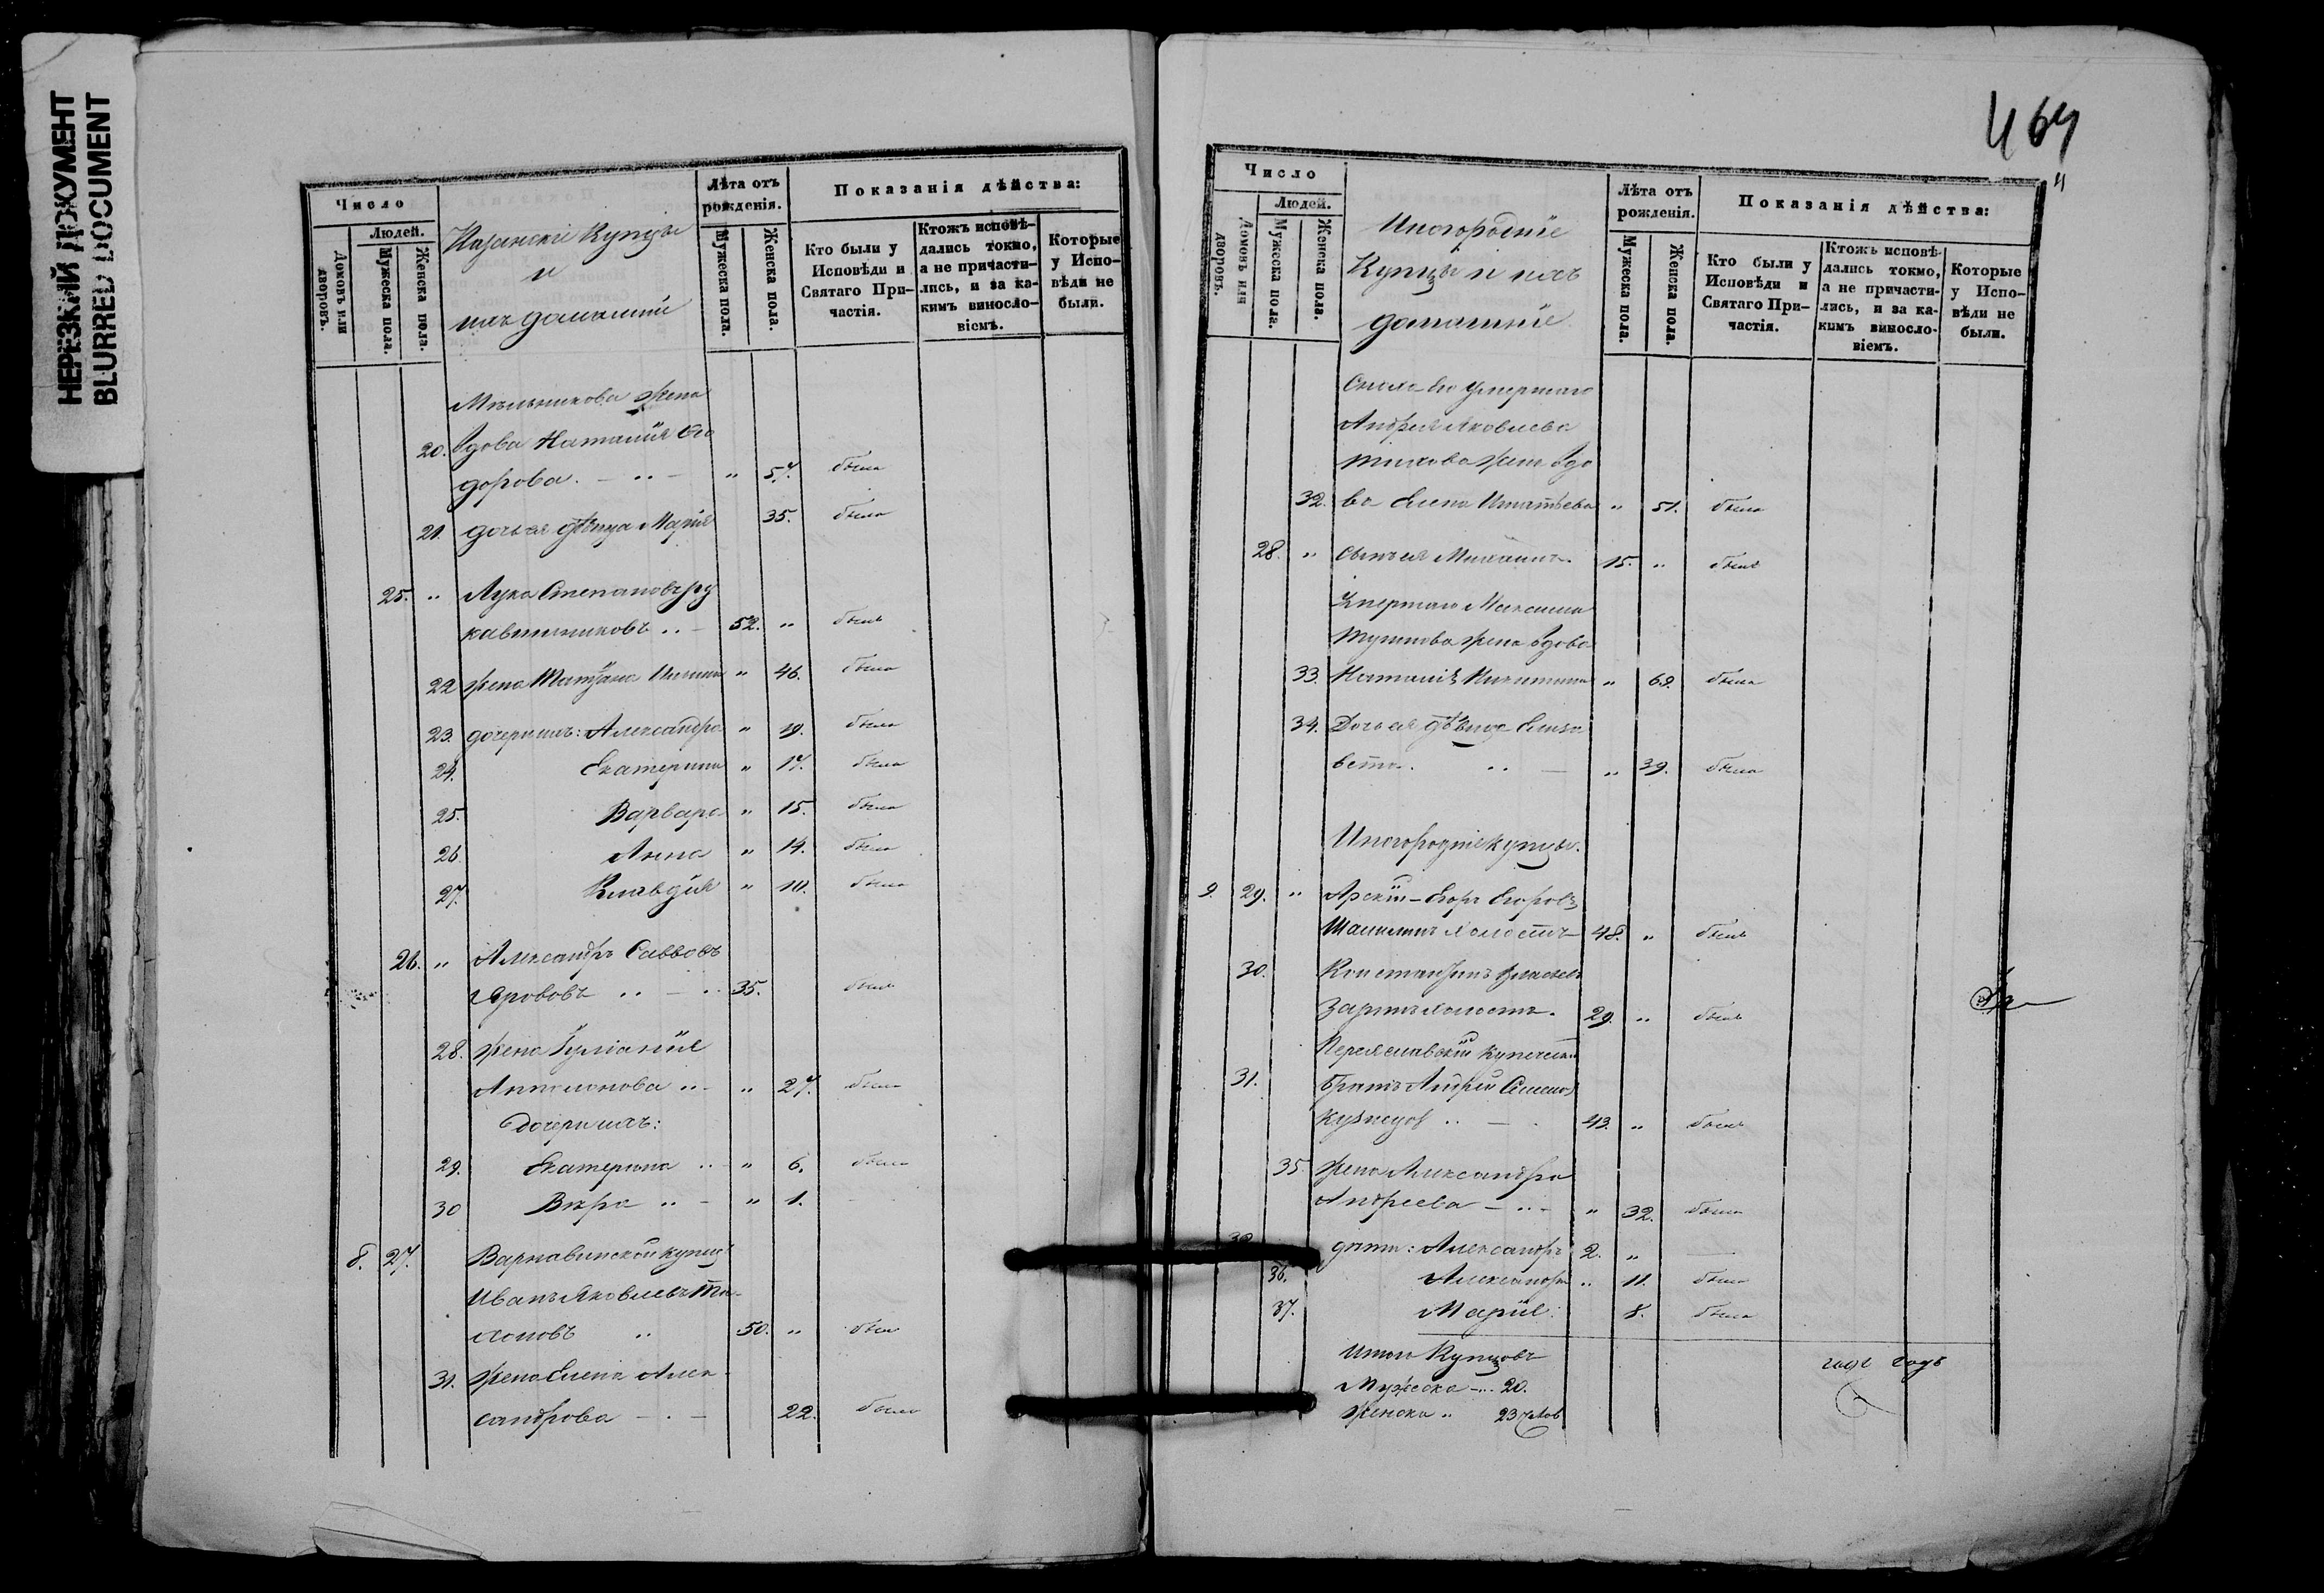 НЕРЕЗКИЙ ДОКУМЕНТ
BLURRED DOCUMENT
Число
Людей.
Домовъ или дворовъ.
Мужеска пола.
Женска пола.
Казанскіе Купцы
и
ихъ домашніе
Лѣта отъ рожденія.
Мужеска пола.
Женска пола.
Показанія дѣйства:
Кто были у Исповѣди и Святаго Причастія.
Ктожъ исповѣдались токмо, а не причастились, и за какимъ винословіемъ.
Которые у Исповѣди не были.
Мѣльникова жена
20. вдова Наталія Ѳео
дорова. " 57. была
21. дочь ея дѣвица Марія 35. была
25. " Лука Степановъ Ру
кавишниковъ 52. " былъ
22 жена Татіана " 46. была
23. дочери ихъ: Александра " 19. была
24. Екатерина " 17. была
25. Варвара " 15. была
26. Анна " 14. была
27. Клавдія " 10. была
26. " Александръ Саввовъ
35. былъ
28. жена Іуліанія
" 27. была
Дочери ихъ:
29. Екатерина " 6. была
30 Вѣра " 1.
8. 27. Варнавинской купецъ
Иванъ Яковлевъ Ти
хоновъ 50. " былъ
31. жена Елена Алек
сандрова 22. была
464
Число
Людей.
Домовъ или дворовъ.
Мужеска пола.
Женска пола.
Иногородніе
Купцы и ихъ
домашніе
Лѣта отъ рожденія.
Мужеска пола.
Женска пола.
Показанія дѣйства:
Кто были у Исповѣди и Святаго Причастія.
Ктожъ исповѣдались токмо, а не причастились, и за какимъ винословіемъ.
Которые у Исповѣди не были.
Сноха его умершаго
Андрея Яковлева
жена вдо
32. ва Елена Игнатьева " 51. была
28. " сынъ ея Михаилъ 15. " былъ
Умершаго Максима
жена вдова
33. Наталія Никитина " 68. была
34. Дочь ея дѣвица Елиза
вета. " 39. была
Иногородніе купцы.
9. 29. " Арскій Егоръ Егоровъ
холостъ 48. " былъ
30. Константинъ
холостъ. 29. " былъ
Переяславскій
31. братъ Андрей Семенов
Кузнецов 43. " былъ
35. жена Александра
Андреева " 32. была
32. дѣти: Александръ 2. "
36. Александра " 11. была
37. Марія 8. была
Итого Купцовъ
Мужеска 20.
Женска 23